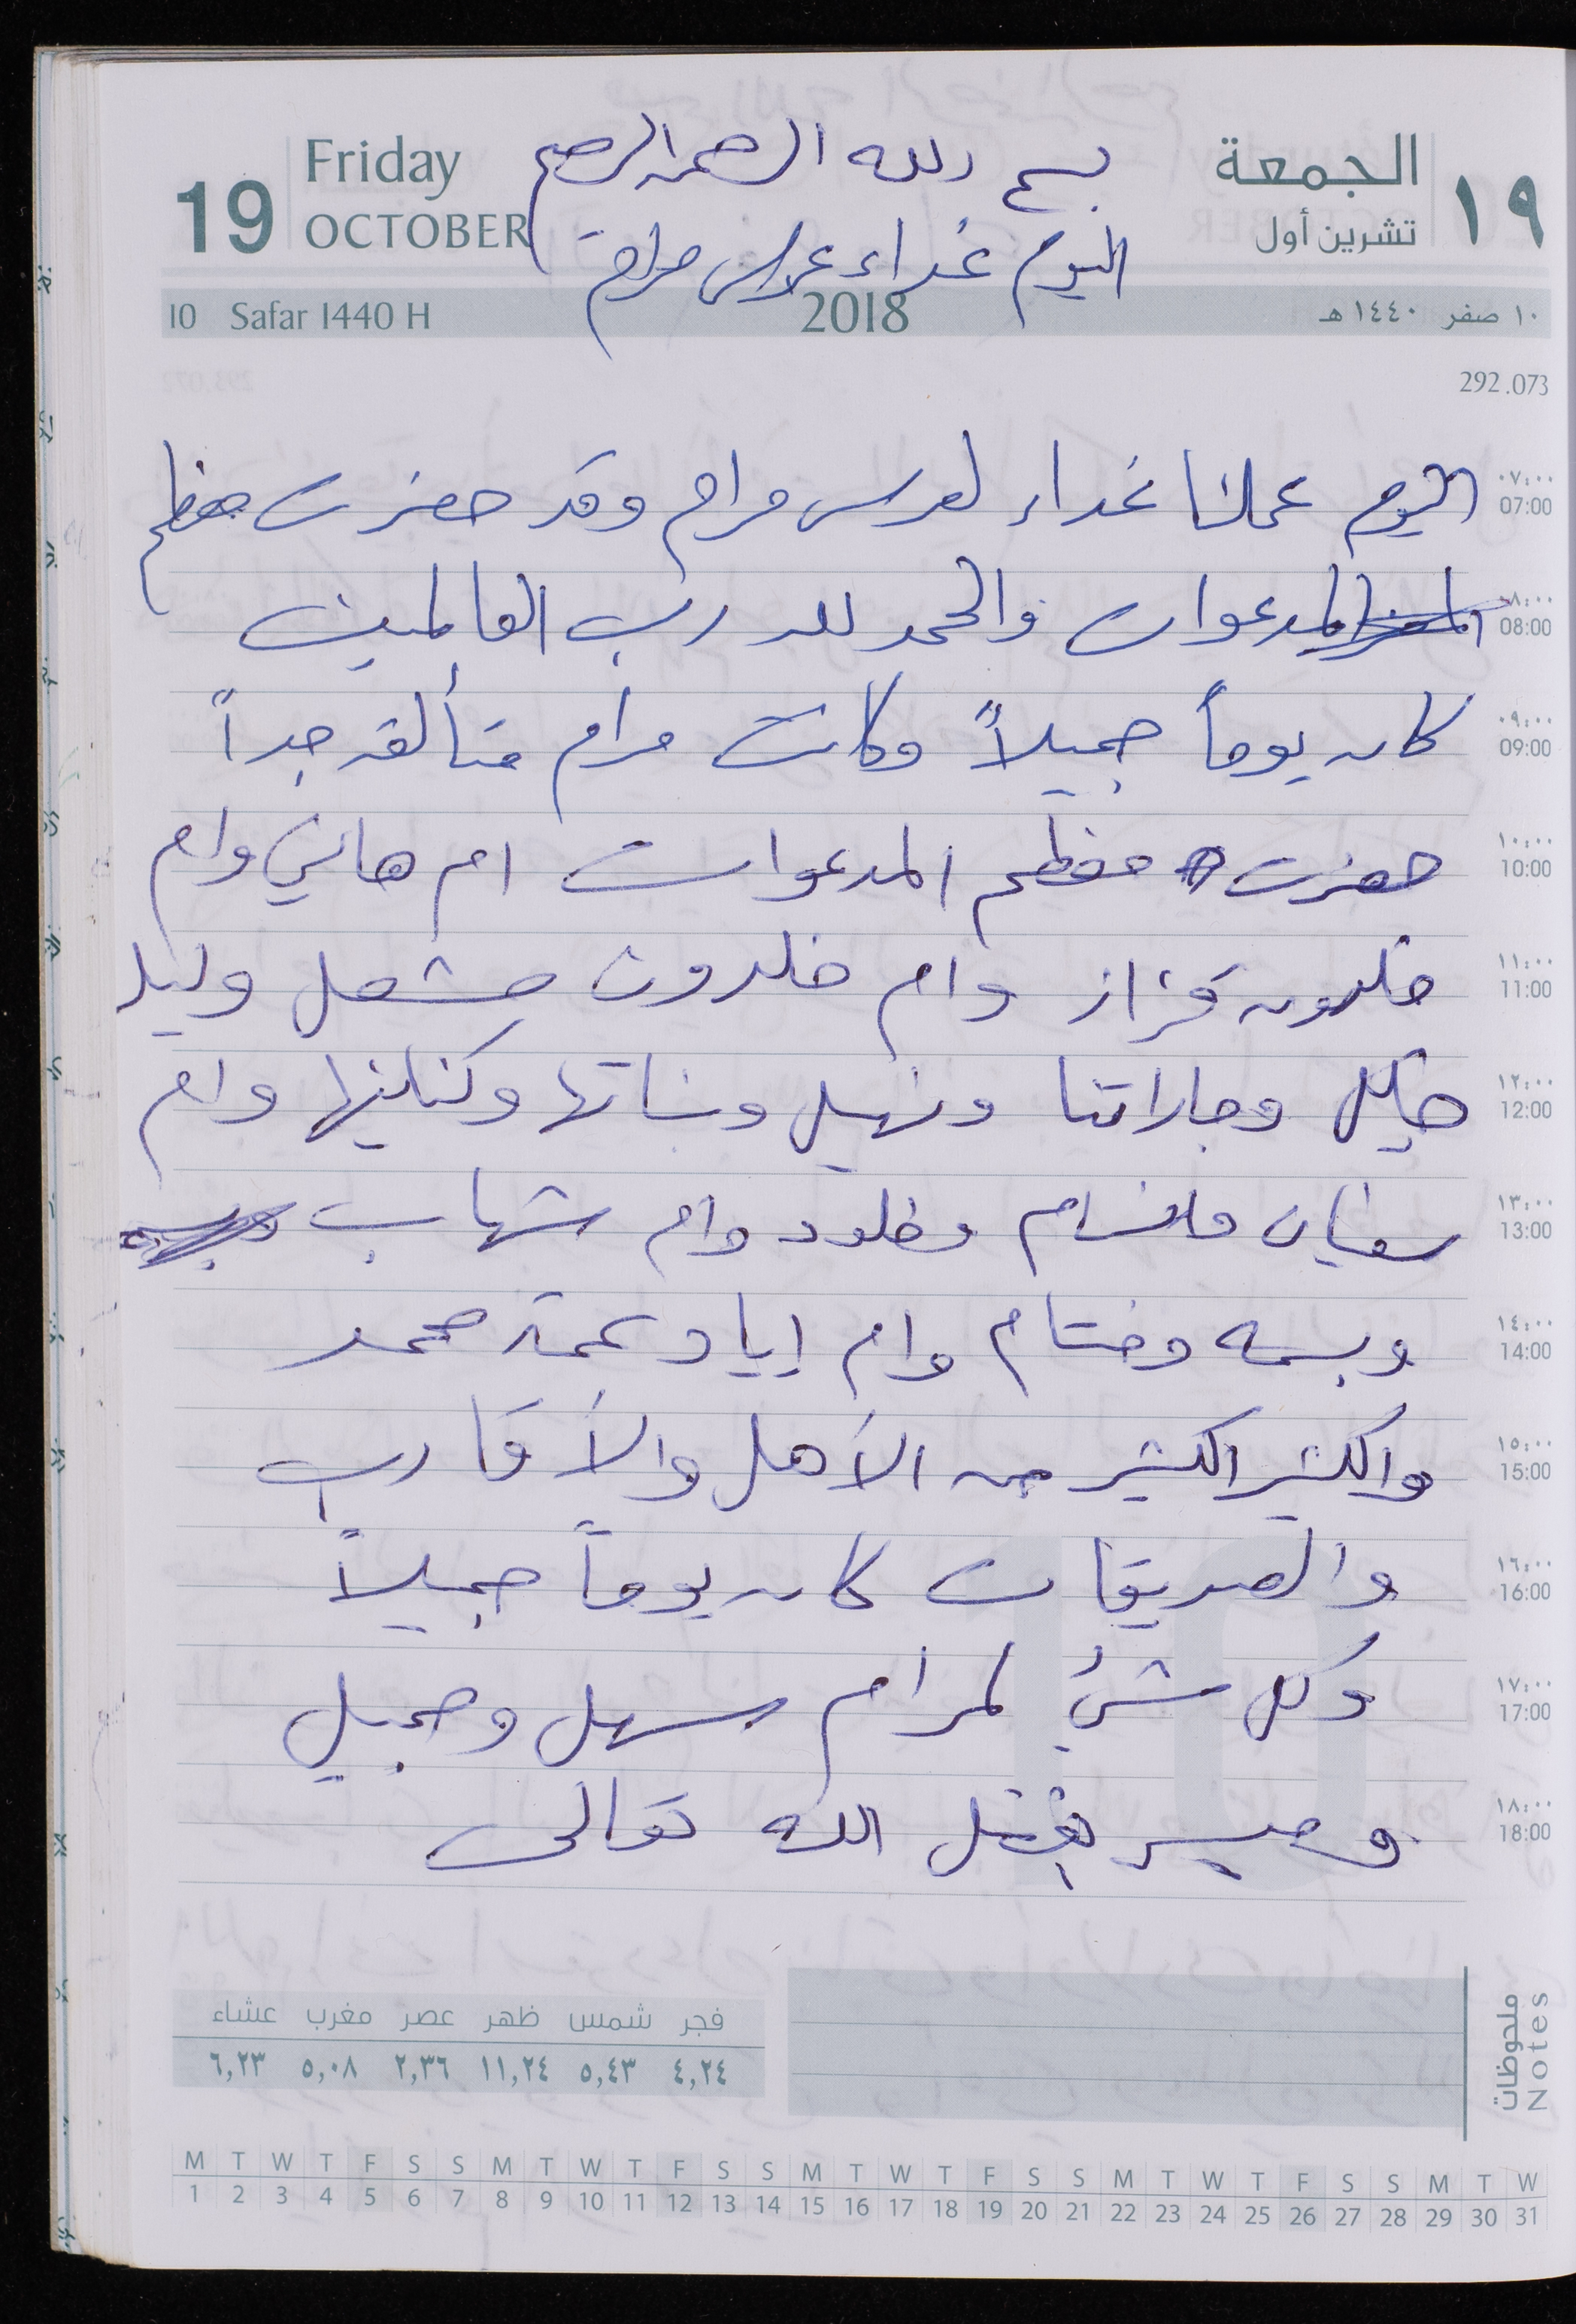 19 Friday OCTOBER
الجمعة ١٩
تشرين أول
بسم الله الرحمن الرحيم
اليوم غداء عرس مرام
10 Safar 1440 H 2018 ١٠ صفر ١٤٤٠ هـ
292.073
اليوم عملنا غداء لعرس مرام وقد حضرت معظم
المدعوات والحمد لله رب العالمين
كان يوماً جميلاً وكانت مرام متألقه جداً
حضرت معظم المدعوات ام هاني وام
خلدون قزاز وام خلدون مشعل وليلا
وجاراتنا ونهيل وبناتها وكناينها وام
سفيان وابتسام وخلود وام شهاب
وبسمه وختام وام إياد وعمة محمد
والكثير الكثير من الأهل والأقارب
والصديقات كان يوماً جميلاً
وكل شئ لمرام سهل وجميل
وميسر بفضل الله تعالى
٠٧:٠٠ 07:00
٠٨:٠٠ 08:00
٠٩:٠٠ 09:00
١٠:٠٠ 10:00
١١:٠٠ 11:00
١٢:٠٠ 12:00
١٣:٠٠ 13:00
١٤:٠٠ 14:00
١٥:٠٠ 15:00
١٦:٠٠ 16:00
١٧:٠٠ 17:00
١٨:٠٠ 18:00
10
ملحوظات
Notes
فجر شمس ظهر عصر مغرب عشاء
٤,٢٤ ٥,٤٣ ١١,٢٤ ٢,٣٦ ٥,٠٨ ٦,٢٣
M T W T F S S M T W T F S S M T W T F S S M T W T F S S M T W
1 2 3 4 5 6 7 8 9 10 11 12 13 14 15 16 17 18 19 20 21 22 23 24 25 26 27 28 29 30 31